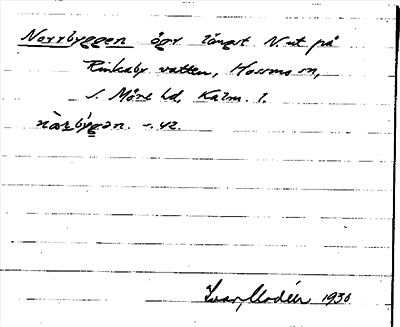 Norrbyggen ägr längst N.ut på
Rinkaby vatten, Hossmo sn,
S. Möre hd, Kalm. l.
nàrbýgən. -. 42.
Ivar Modéer 1930